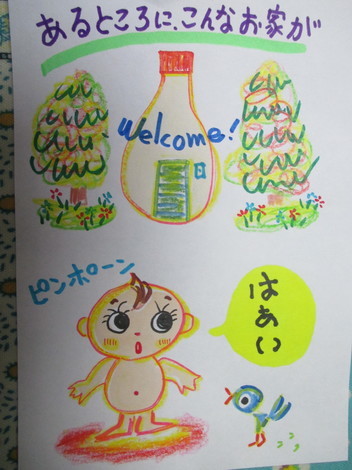 あるところに、こんなお家が
Welcome!
ピンポーン
はあい